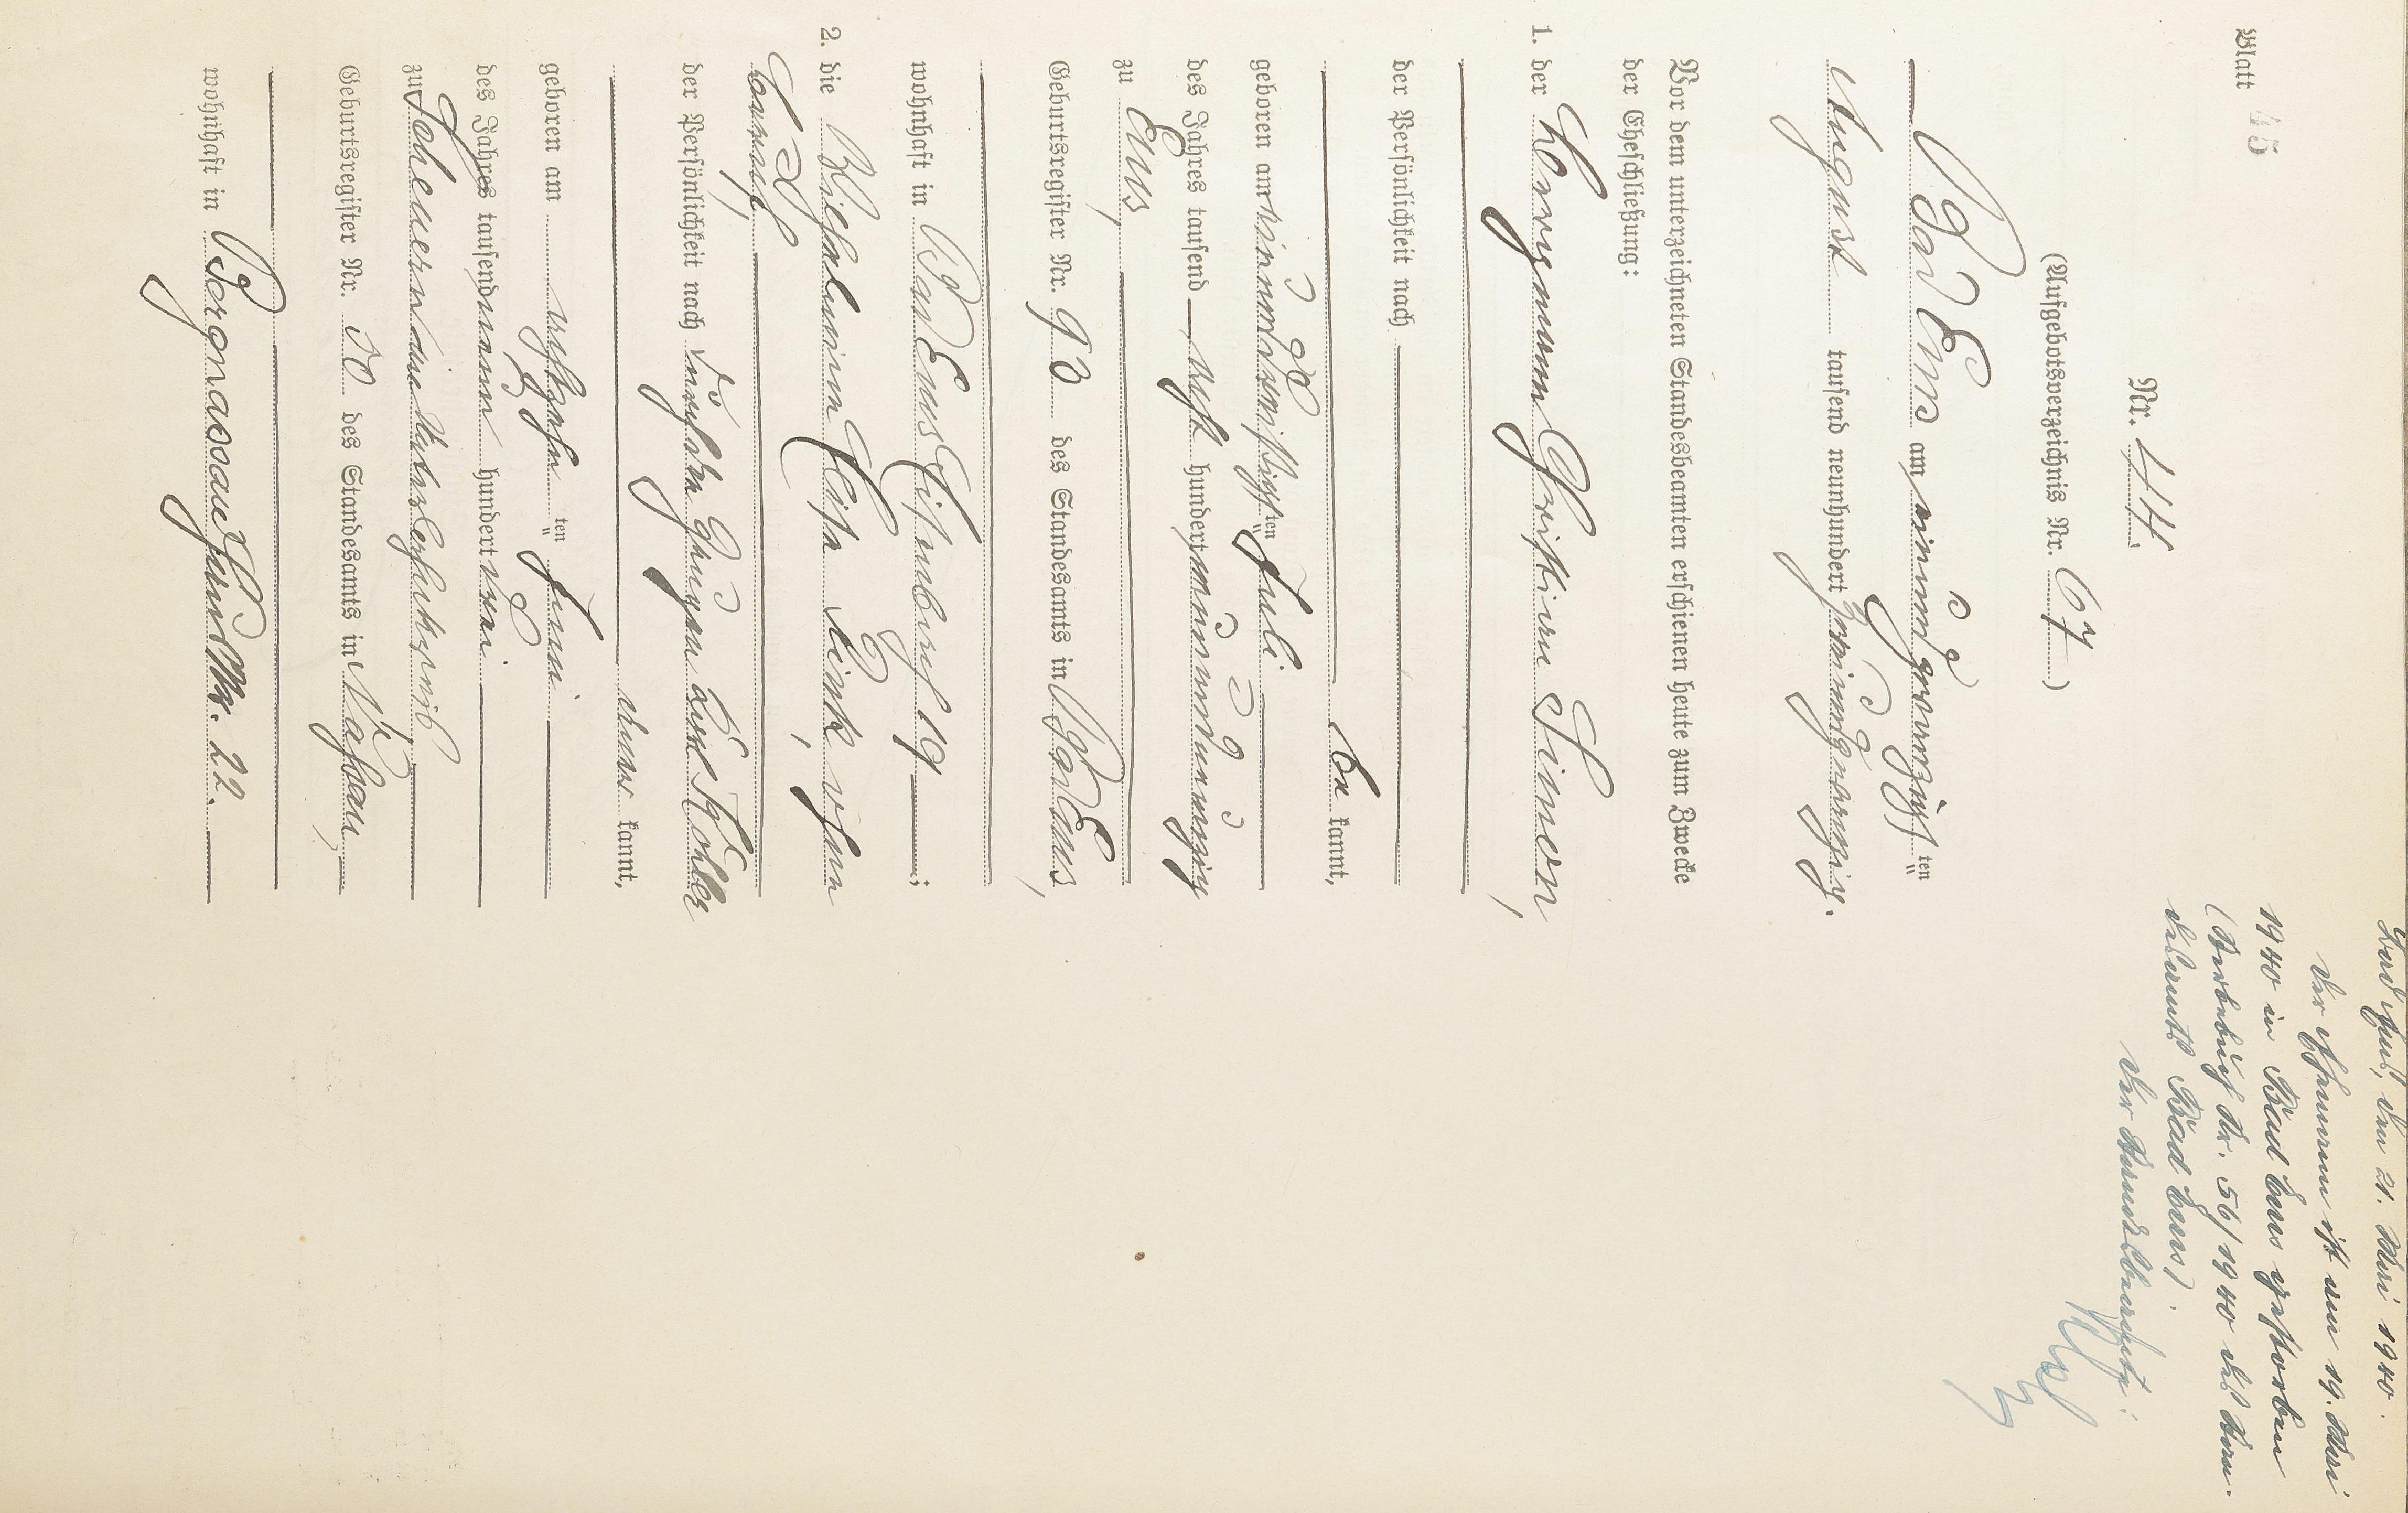 Blatt 45
Nr. 44.
(Aufgebotsverzeichnis Nr. 67)
Bad Ems am einundzwanzigsten
August tausend neunhundert zweiundzwanzig.
Vor dem unterzeichneten Standesbeamten erschienen heute zum Zwecke
der Eheschließung:
1. der Bergmann Christian Simon,
der Persönlichkeit nach
be kannt,
geboren am einunddreißigsten Juli
des Jahres tausend acht hundert neunundneunzig
zu Ems,
Geburtsregister Nr. 93 des Standesamts in Bad Ems,
wohnhaft in Bad Ems, 19;
2. die Wilhelmine Elisa Link, ohne
Beruf,
der Persönlichkeit nach durch den Zeugen Karl Köhler
aner kannt,
geboren am achtzehnten Juni
des Jahres tausend neun hundert drei
zu Scheuern im Unterlahnkreis
Geburtsregister Nr. 20 des Standesamts in Nassau,
wohnhaft in Bergnassau Nr. 22.
Bad Ems, den 21. Mai 1940.
Der Ehemann ist am 19. Mai
1940 in Bad Ems gestorben
(Sterbebuch Nr. 56/1940 des Stan-
desamts Bad Ems).
Der Standesbeamte: